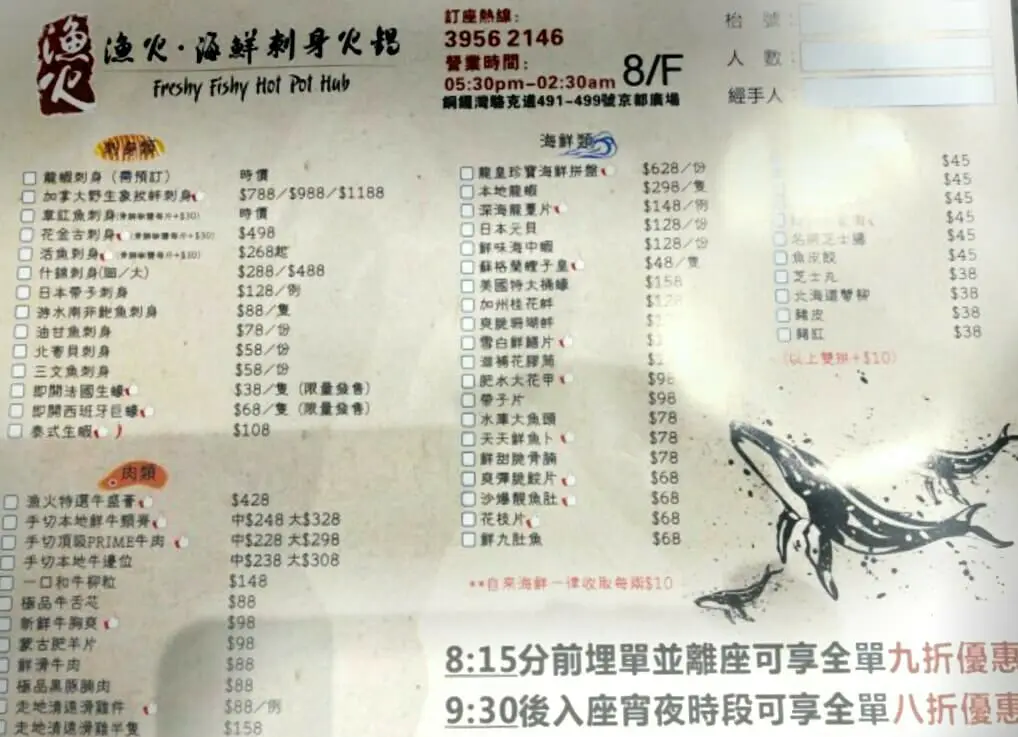 漁火
漁火·海鮮刺身火鍋
Freshy Fishy Hot Pot Hub
訂座熱線:
3956 2146
營業時間:
05:30pm-02:30am
8/F
銅鑼灣駱克道491-499號京都廣場
枱 號:
人 數:
經手人
刺身類
龍蝦刺身 (需預訂) 時價
加拿大野生象拔蚌刺身 $788/$988/$1188
章魟魚刺身 時價
花金古刺身 $498
活魚刺身 $268起
什錦刺身(細/大) $288/$488
日本帶子刺身 $128/例
游水南非鮑魚刺身 $88/隻
油甘魚刺身 $78/份
北寄貝刺身 $58/份
三文魚刺身 $58/份
即開法國生蠔 $38/隻 (限量發售)
即開西班牙巨蠔 $68/隻 (限量發售)
泰式生蝦 $108
肉類
漁火特選牛盛薈 $428
手切本地鮮牛頸脊 中$248 大$328
手切頂級PRIME牛肉 中$228 大$298
手切本地牛邊位 中$238 大$308
一口和牛柳粒 $148
極品牛舌芯 $88
新鮮牛胸爽 $98
蒙古肥羊片 $98
鮮滑牛肉 $88
極品黑豚腩肉 $88
走地清遠滑雞件 $88/例
走地清遠滑雞半隻 $158
海鮮類
龍皇珍寶海鮮拼盤 $628/份
本地龍蝦 $298/隻
深海龍躉片 $148/例
日本元貝 $128/份
鮮味海中蝦 $128/份
蘇格蘭蟶子皇 $48/隻
美國特大桶蠔 $158
加州桂花蚌
爽脆珊瑚蚌
雪白鮮鱔片
滋補花膠筒
肥水大花甲 $98
帶子片 $98
水庫大魚頭 $78
天天鮮魚卜 $78
鮮甜脆骨腩 $78
爽彈脆鮫片 $68
沙爆靚魚肚 $68
花枝片 $68
鮮九肚魚 $68
**自來海鮮一律收取每兩$10
$45
$45
$45
$45
名網芝士腸 $45
魚皮餃 $45
芝士丸 $38
北海道蟹柳 $38
豬皮 $38
豬紅 $38
(以上雙拼+$10)
8:15分前埋單並離座可享全單九折優惠
9:30後入座宵夜時段可享全單八折優惠